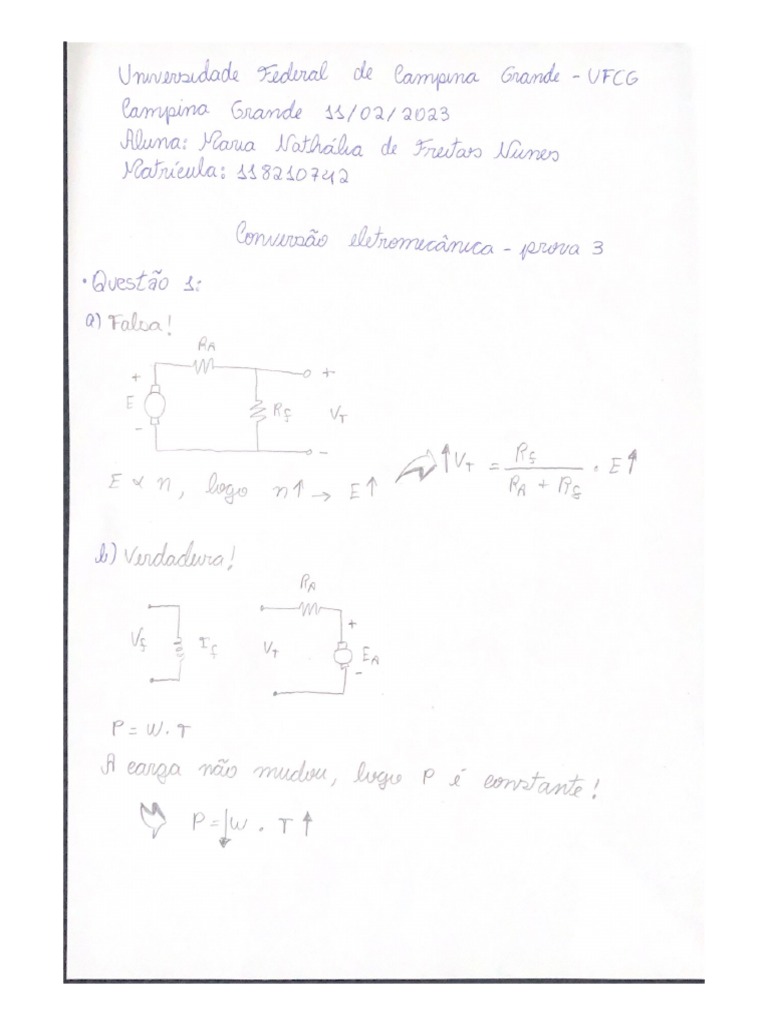 Universidade Federal de Campina Grande - UFCG
Campina Grande 11/02/2023
Aluna: Maria Nathália de Freitas Nunes
Matrícula: 118210742
Conversão eletromecânica - prova 3
• Questão 1:
a) Falsa!
RA
+ +
E Rf VT
- -
E ∝ n, logo n↑ → E↑ ↑VT = Rf / (RA + Rf) · E↑
b) Verdadeira!
RA
+
Vf If VT EA
-
P = W . T
A carga não mudou, logo P é constante!
P = ↓W . T↑